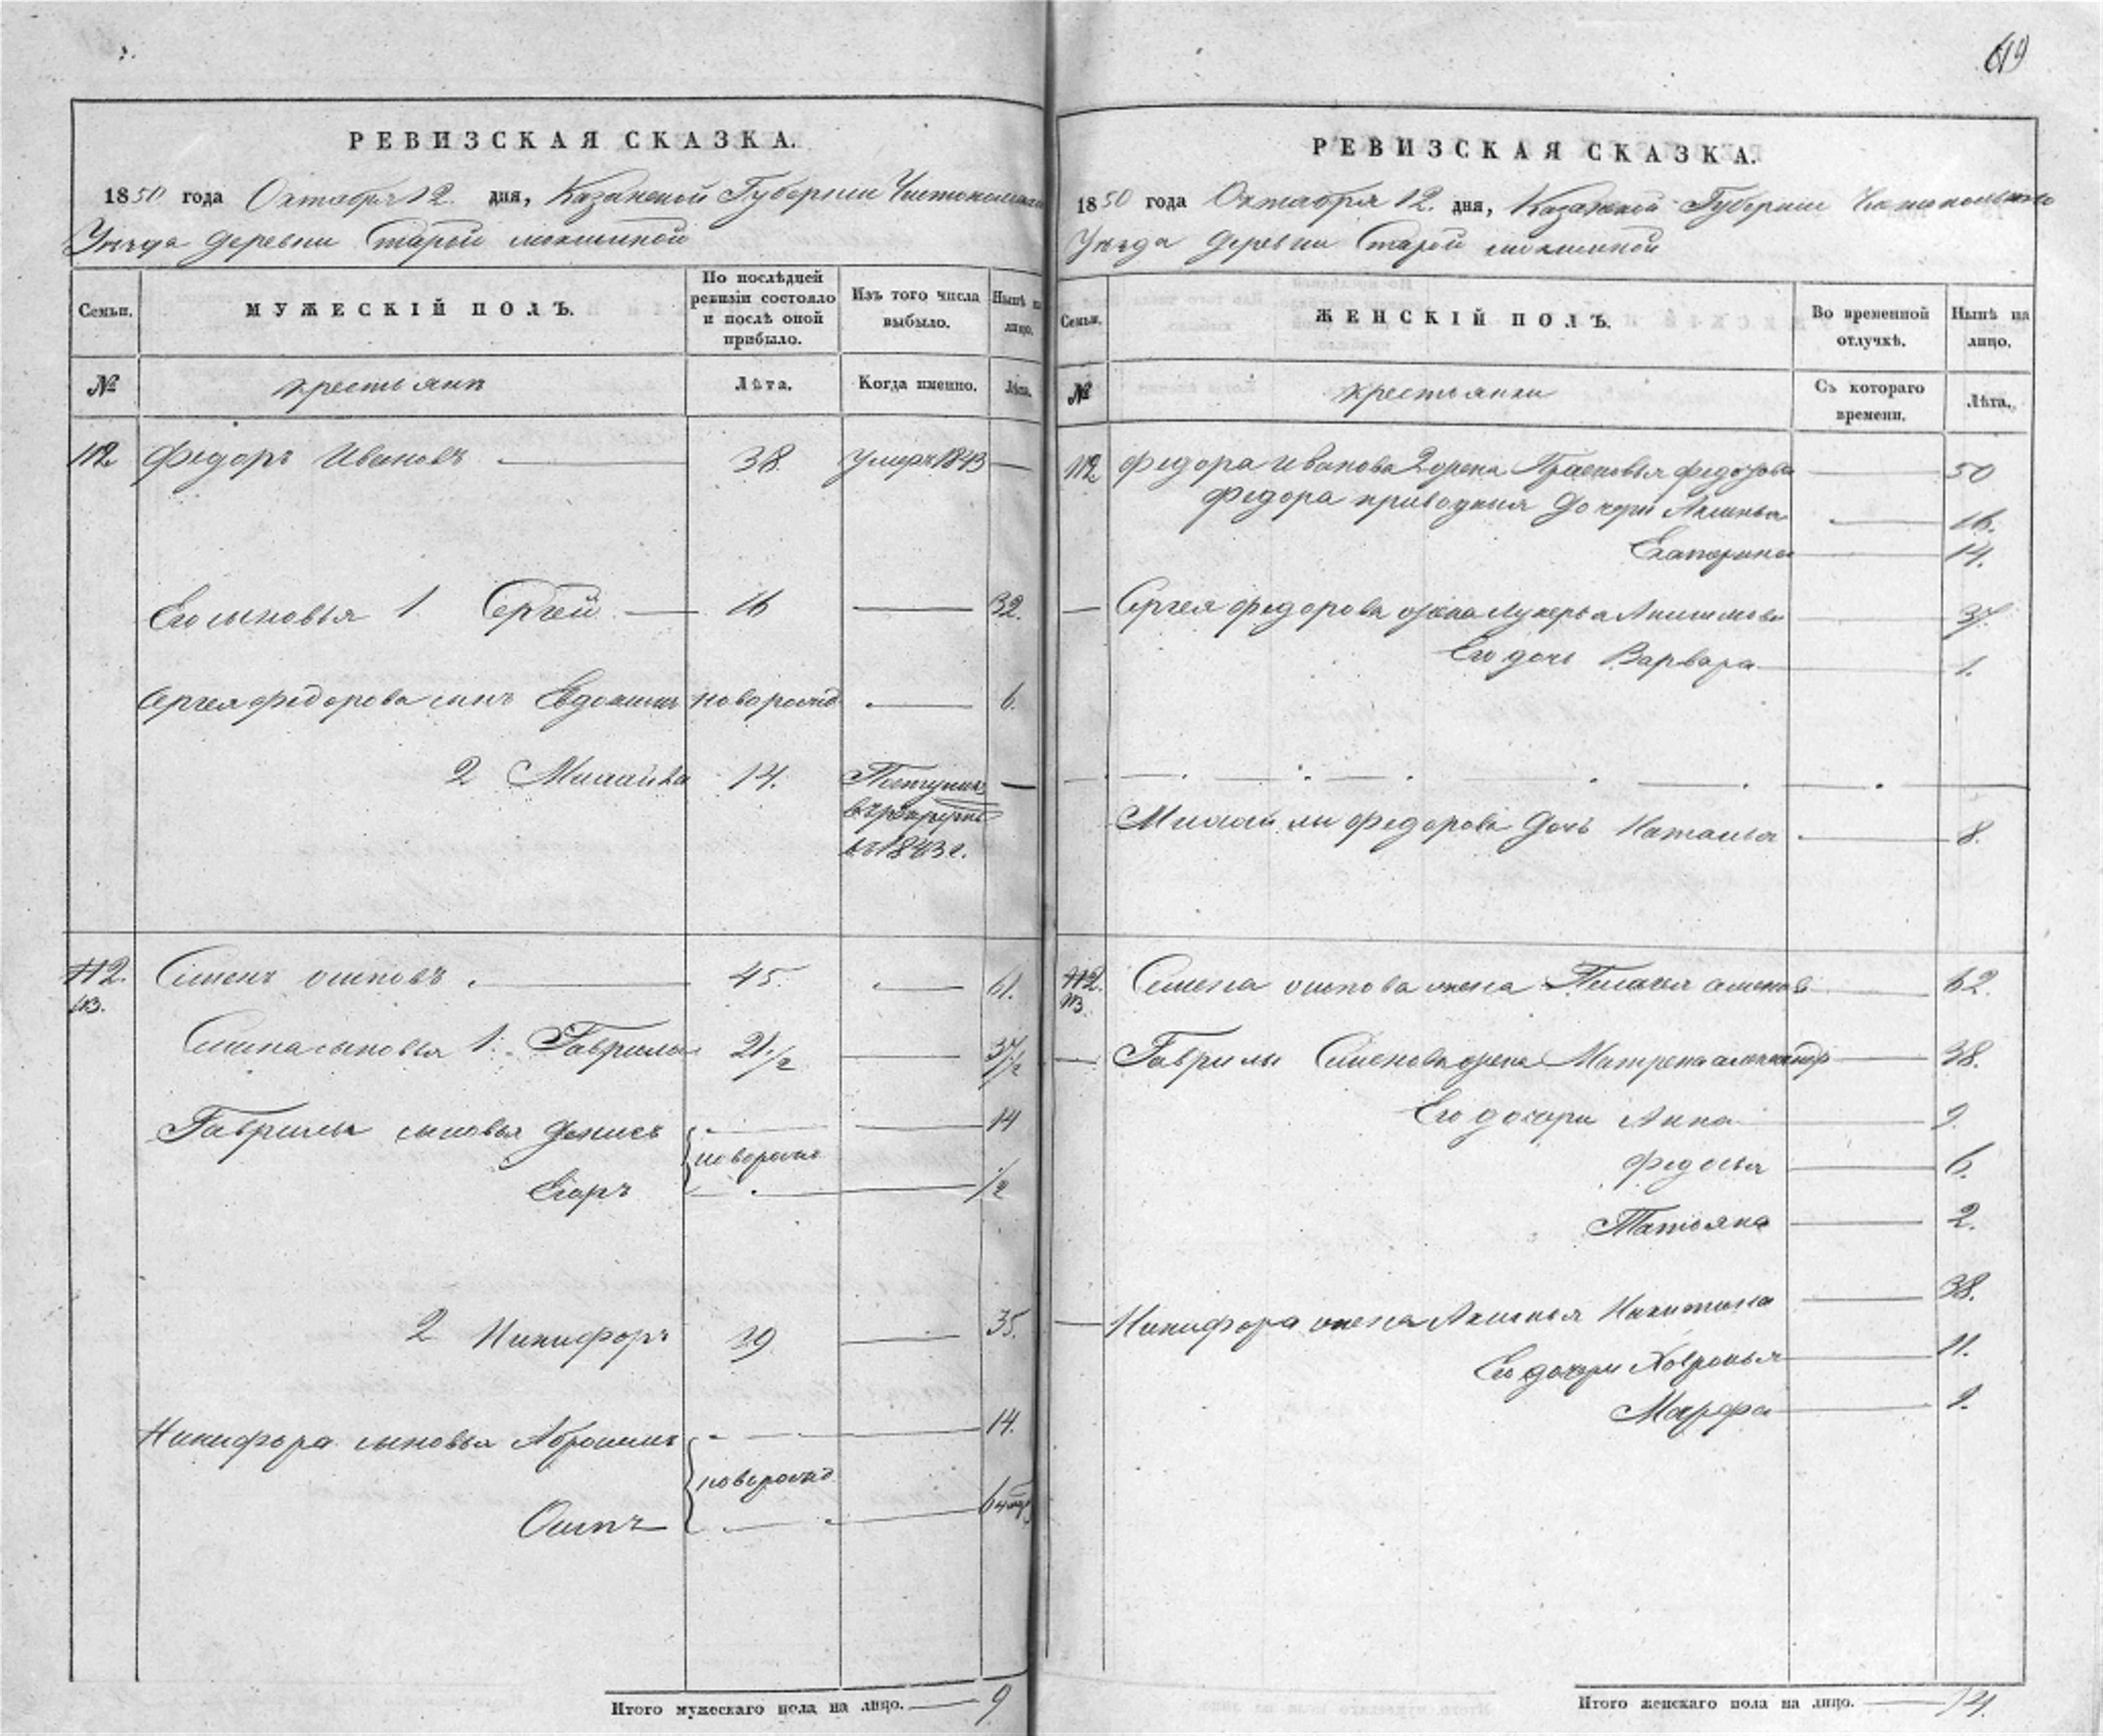 РЕВИЗСКАЯ СКАЗКА.
1850 года Октября 12. дня, Казанской Губернии Чистопольскаго
Уѣзда деревни Старой мокшиной
Семьи.
МУЖЕСКІЙ ПОЛЪ.
По послѣдней ревизіи состояло и послѣ оной прибыло.
Изъ того числа выбыло.
Нынѣ на лицо.
№
крестьяне
Лѣта.
Когда именно.
Лѣта.
112 Федоръ Ивановъ 38 умеръ 1843
Его сыновья 1 Сергей 16 32.
Сергея федорова сынъ Евдокимъ новорожд 6.
2 Михайла 14. Поступилъ
въ рекруты
въ 1843 г.
112. Семенъ осиповъ. 45. 61.
113.
Семена сыновья 1. Гаврила 21 1/2 37 1/2
Гаврилы сыновья Денисъ 14
новорожд
Егоръ 1/2
2 Никифоръ 19 35.
Никифора сыновья Абрамъ 14.
новорожд
Осипъ
Итого мужескаго пола на лицо. 9
619
РЕВИЗСКАЯ СКАЗКА.
1850 года Октября 12. дня, Казанской Губернии Чистопольскаго
Уѣзда деревни Старой мокшиной
Семьи.
ЖЕНСКІЙ ПОЛЪ.
Во временной отлучкѣ.
Нынѣ на лицо.
№
крестьянки
Съ котораго времени.
Лѣта.
112 Федора Иванова 2 жена Прасковья федорова 50
Федора приводныя дочери Аксинья 16.
Екатерина 14.
Сергея федорова жена Лукерья Анисимова 37.
Его дочь Варвара 1.
Михайлы федорова дочь Наталья 8.
112. Семена осипова жена Пелагея семенова 62.
113.
Гаврилы Семенова жена Матрена александр 38.
Его дочери Анна 9.
Федосья 6.
Татьяна 2.
Никифора жена Аксинья Никитина 38.
Его дочери Ховронья 11.
Марфа 9.
Итого женскаго пола на лицо. 14.